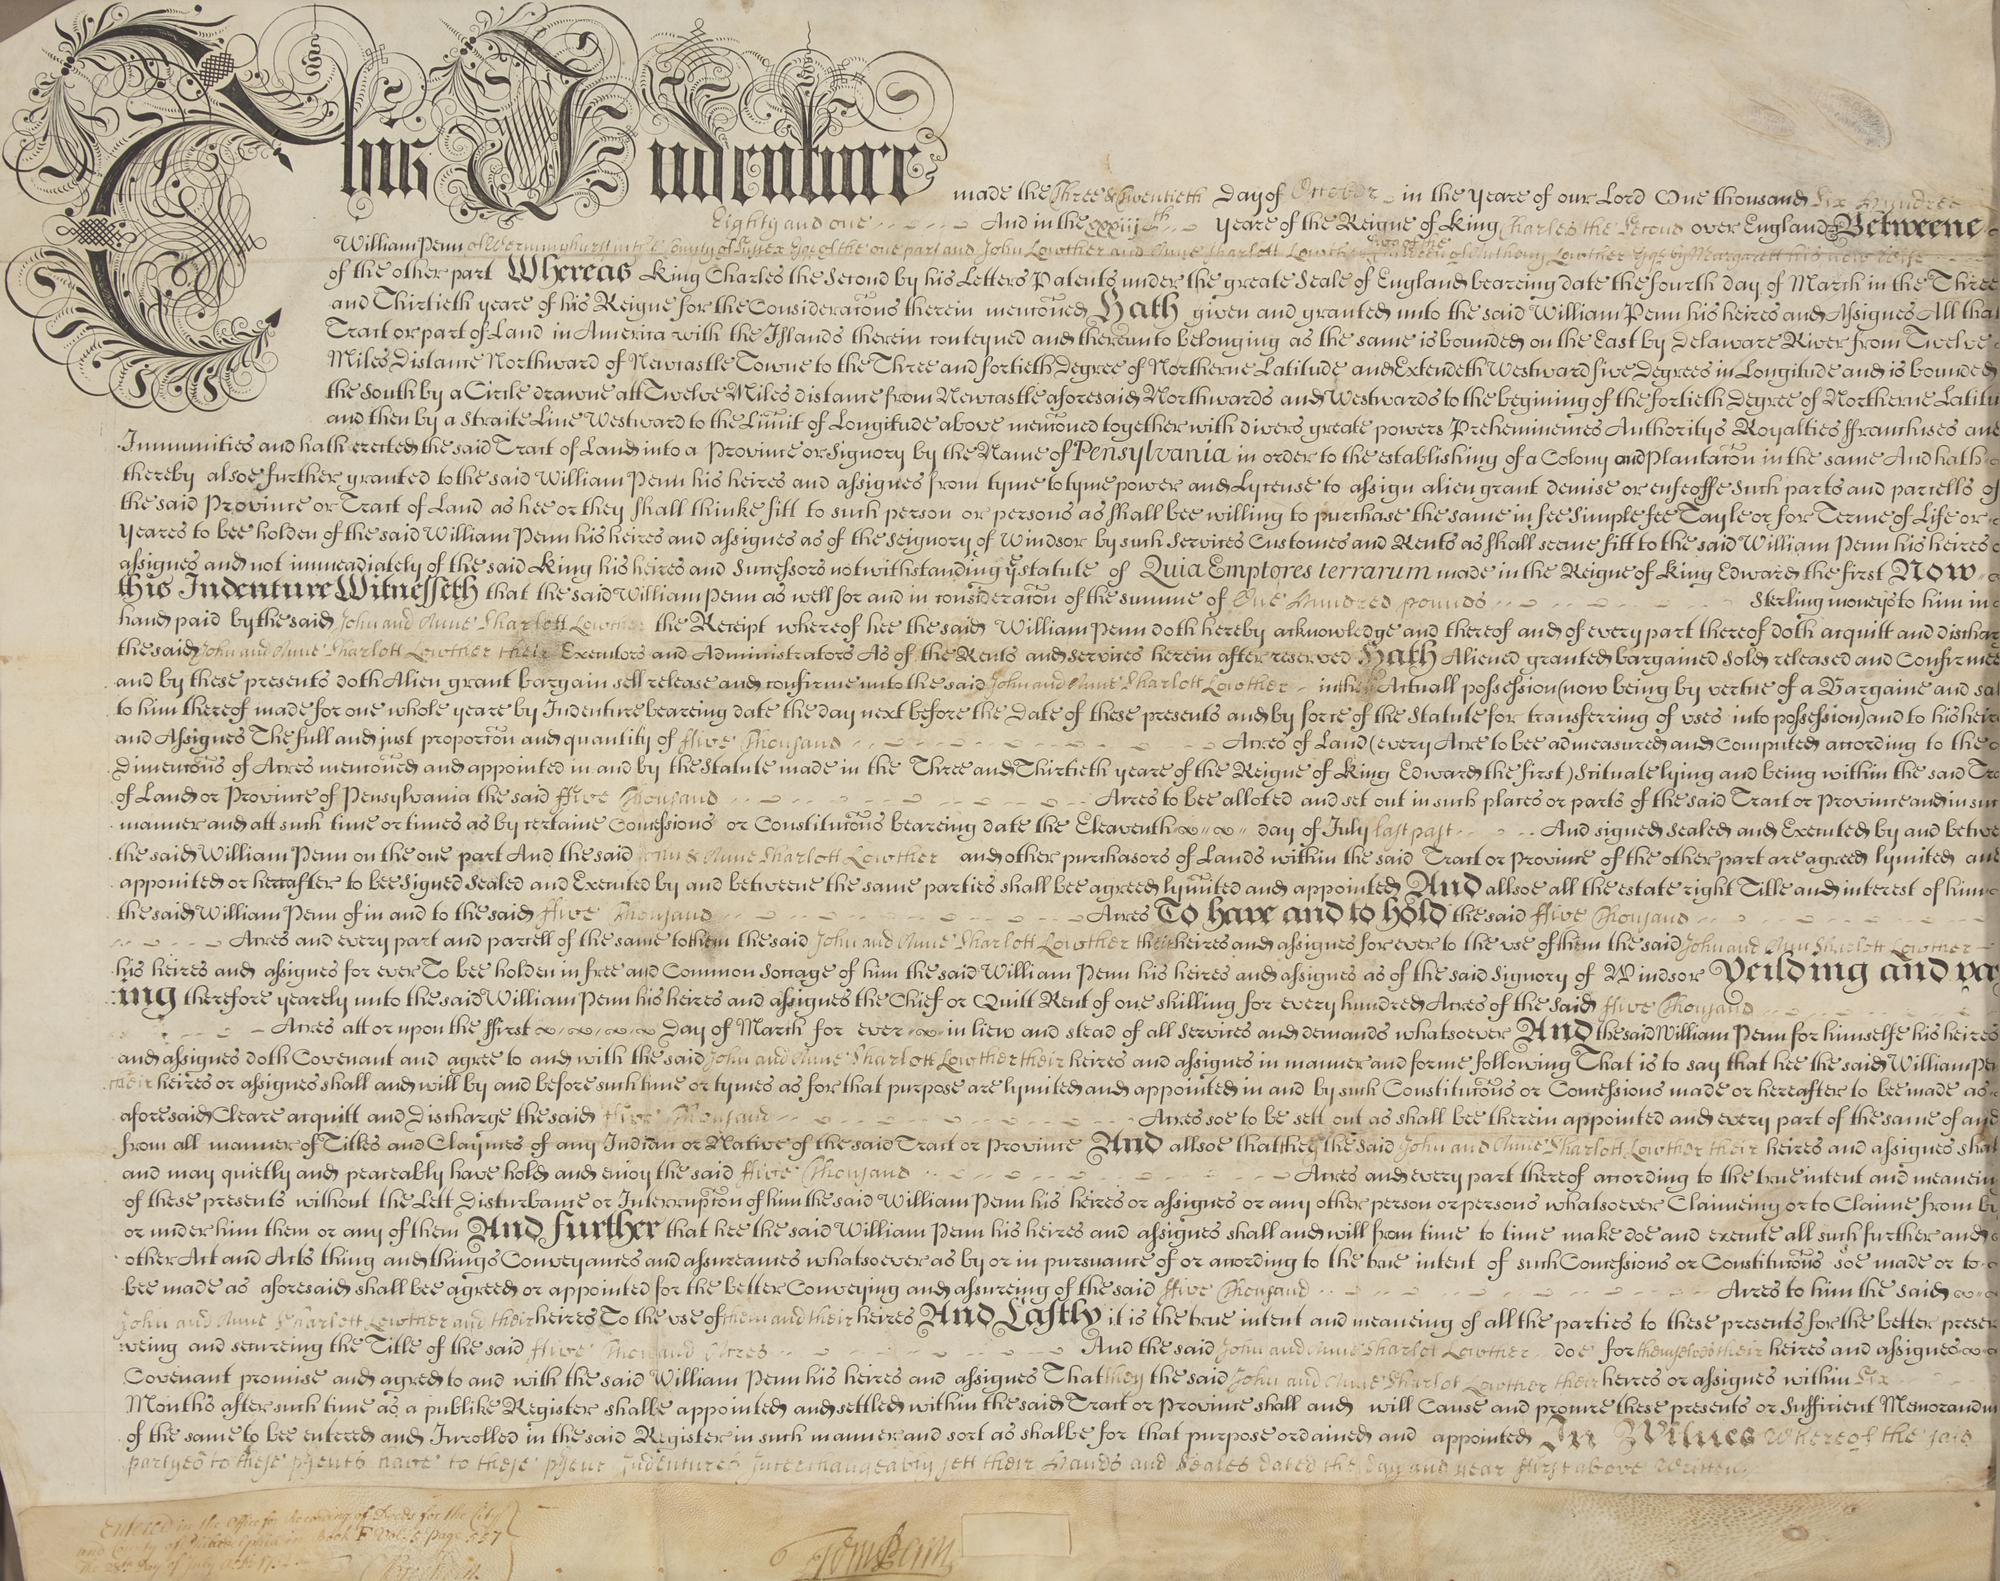 This Indenture made the Three & twentieth Day of October in the Yeare of our Lord One thousand Six Hundred
Eighty and one And in the xxxiijth yeare of the Reigne of King Charles the Second over England &c Betweene
William Penn of Werminghurst in the County of Sussex Esqr of the one part and John Lowther and Anne Sharlott Lowther Children of Anthony Lowther Esqr by Margarett his now Wife
of the other part Whereas King Charles the Second by his Letters Patents under the greate Seale of England beareing date the fourth day of March in the Three
and Thirtieth yeare of his Reigne for the Consideracons therein menconed Hath given and granted unto the said William Penn his heires and Assignes All that
Tract or part of Land in America with the Islands therein conteyned and thereunto belonging as the same is bounded on the East by Delaware River from Twelve
Miles Distance Northward of Newcastle Towne to the Three and fortieth Degree of Northerne Latitude and Extendeth Westward five Degrees in Longitude and is bounded
the South by a Circle drawne att Twelve Miles distance from Newcastle aforesaid Northwards and Westwards to the begining of the fortieth Degree of Northerne Latitu
and then by a Straite Line Westward to the Limitt of Longitude above menconed together with divers greate powers Preheminences Authoritys Royalties ffranchises and
Immunities and hath erected the said Tract of Land into a Province or Signory by the Name of Pensylvania in order to the establishing of a Colony and Plantacon in the same And hath
thereby alsoe further granted to the said William Penn his heires and assignes from tyme to tyme power and Lycense to assign alien grant demise or enfeoffe Such parts and parcells of
the said Province or Tract of Land as hee or they shall thinke fitt to such person or persons as shall bee willing to purchase the same in fee Simple fee Tayle or for Terme of Life or
Yeares to bee holden of the said William Penn his heires and assignes as of the Seignory of Windsor by such Services Customes and Rents as shall seeme fitt to the said William Penn his heires
assignes and not immeadiately of the said King his heires and Successors notwithstanding ye Statute of Quia Emptores terrarum made in the Reigne of King Edward the first Now
this Indenture Witnesseth that the said William Penn as well for and in consideracon of the summe of One Hundred pounds Sterling moneys to him in
hand paid by the said John and Anne Sharlott Lowther the Receipt whereof hee the said William Penn doth hereby acknowledge and thereof and of every part thereof doth acquitt and dischar
the said John and Anne Sharlott Lowther their Executors and Administrators As of the Rents and Services herein after reserved Hath Aliened granted bargained Sold released and Confirmed
and by these presents doth Alien grant bargain sell release and confirme unto the said John and Anne Sharlott Lowther in their Actuall possession (now being by vertue of a Bargaine and sal
to him thereof made for one whole yeare by Indenture beareing date the day next before the Date of these presents and by force of the Statute for transferring of uses into possession) and to his heir
and Assignes The full and just proporcon and quantity of ffive Thousand Acres of Land (every Acre to bee admeasured and Computed according to the
Dimencons of Acres menconed and appointed in and by the Statute made in the Three and Thirtieth yeare of the Reigne of King Edward the first) Scituate lying and being within the said Tra
of Land or Province of Pensylvania the said ffive Thousand Acres to bee alloted and set out in such places or parts of the said Tract or Province and in such
manner and att such time or times as by certaine Concessions or Constitucons beareing date the Eleaventh day of July last past And signed Sealed and Executed by and betwe
the said William Penn on the one part And the said John & Anne Sharlott Lowther and other purchasors of Lands within the said Tract or Province of the other part are agreed lymited and
appointed or hereafter to bee Signed Sealed and Executed by and betweene the same parties shall bee agreed lymited and appointed And allsoe all the estate right Title and interest of him
the said William Penn of in and to the said ffive Thousand Acres To have and to hold the said ffive Thousand
Acres and every part and parcell of the same to them the said John and Anne Sharlott Lowther their heires and assignes for ever to the use of them the said John and Ann Sharlott Lowther
his heires and assignes for ever To bee holden in free and Common Soccage of him the said William Penn his heires and assignes as of the said Signory of Windsor Yeilding and pay
ing therefore yearely unto the said William Penn his heires and assignes the Chief or Quitt Rent of one shilling for every hundred Acres of the said ffive Thousand
Acres att or upon the ffirst Day of March for ever in liew and stead of all Services and demands whatsoever And the said William Penn for himselfe his heires
and assignes doth Covenant and agree to and with the said John and Anne Sharlott Lowther their heires and assignes in manner and forme following That is to say that hee the said William Pe
their heires or assignes shall and will by and before such time or tymes as for that purpose are lymited and appointed in and by such Constitucons or Concessions made or hereafter to bee made as
aforesaid Cleare acquitt and Discharge the said ffive Thousand Acres soe to be sett out as shall bee therein appointed and every part of the same of and
from all manner of Titles and Claymes of any Indian or Native of the said Tract or Province And allsoe that they the said John and Anne Sharlott Lowther their heires and assignes shall
and may quietly and peaceably have hold and enjoy the said ffive Thousand Acres and every part thereof according to the true intent and meanein
of these presents without the Lett Disturbance or Interrupcon of him the said William Penn his heires or assignes or any other person or persons whatsoever Claimeing or to Claime from by
or under him them or any of them And further that hee the said William Penn his heires and assignes shall and will from time to time make doe and execute all such further and
other Act and Acts thing and things Conveyances and assureances whatsoever as by or in pursuance of or according to the true intent of such Concessions or Constitucons soe made or to
bee made as aforesaid shall bee agreed or appointed for the better Conveying and assureing of the said ffive Thousand Acres to him the said
John and Anne Sharlott Lowther and their heires To the use of them and their heires And Lastly it is the true intent and meaneing of all the parties to these presents for the better preser
veing and secureing the Title of the said ffive Thousand Acres And the said John and Anne Sharlot Lowther doe for themselves their heires and assignes
Covenant promise and agree to and with the said William Penn his heires and assignes That they the said John and Anne Sharlot Lowther their heires or assignes within Six
Months after such time as a publike Register shalbe appointed and settled within the said Tract or Province shall and will Cause and procure these presents or Sufficient Memorandum
of the same to bee entered and Inrolled in the said Register in such manner and sort as shalbe for that purpose ordained and appointed In Witness whereof the said
partyes to these presents have to these present Indentures Interchangeably sett their Hands and Seales dated the day and year ffirst above Written.
Entered in the Office for Recording of Deeds for the City
and County of Philadelphia in Book F Vol: 5 Page 557
the 28th Day of July
Wm Penn